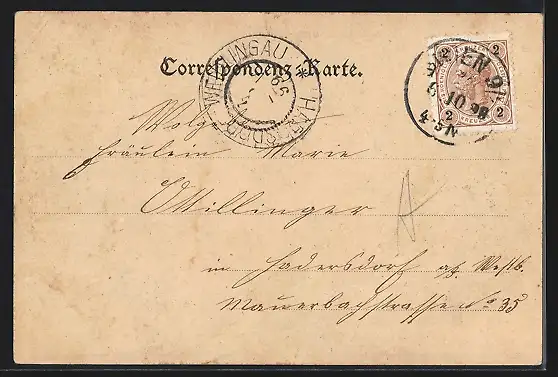 Correspondenz-Karte.
HADERSDORF-WEIDLINGAU
WIEN 9/
6.10.98
4-5 N
2 2
2 2
Wolg.
Fräulein Marie
Ottillinger
in Hadersdorf a/d. Westb.
Mauerbachstrasse No 35